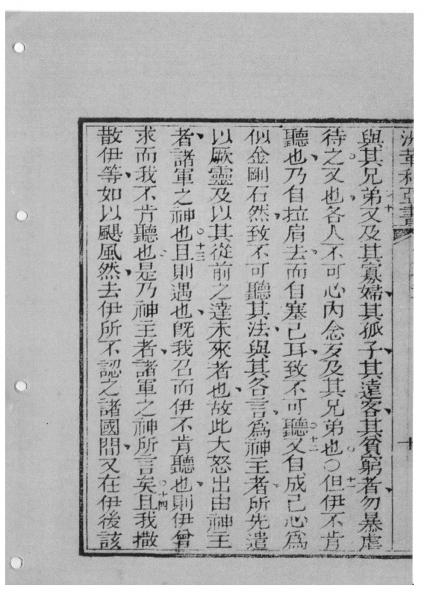 與其兄弟又及其寡婦其孤子其遠客其貧窮者勿暴虐
待之又也各人不可心內念歹及其兄弟也○但伊不肯
聽也乃自拉肩去而自塞己耳致不可聽又自成己心爲
似金剛石然致不可聽其法與其各言爲神主者所先遣
以厥靈及以其從前之達未來者也故此大怒出由神主
者諸軍之神也且則遇也旣我召而伊不肯聽也則伊曾
求而我不肯聽也是乃神主者諸軍之神所言矣且我撒
散伊等如以颶風然去伊所不認之諸國間又在伊後該